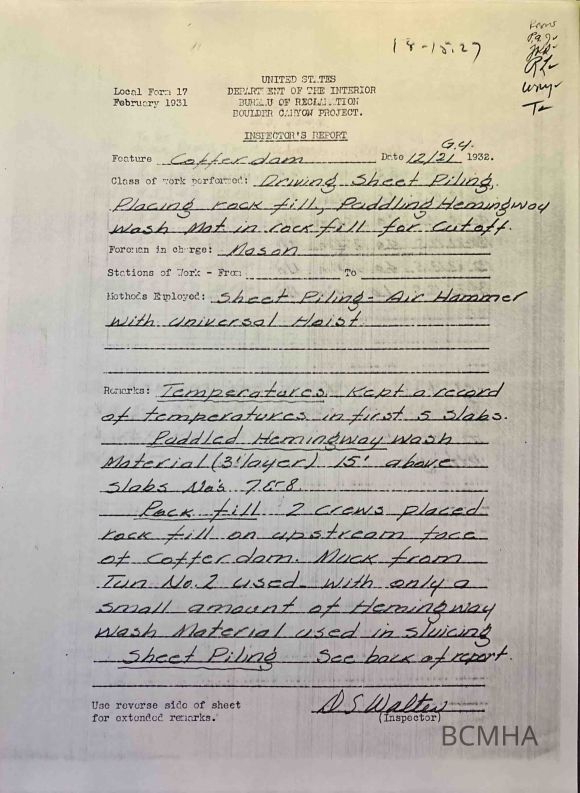 18-15.27
UNITED STATES
Local Form 17 DEPARTMENT OF THE INTERIOR
February 1931 BUREAU OF RECLAMATION
BOULDER CANYON PROJECT.
INSPECTOR'S REPORT
G.Y.
Feature Cofferdam Date 12/21 1932.
Class of work performed: Driving Sheet Piling,
Placing rock fill, Puddling Hemingway
Wash Mat in rock fill for Cutoff.
Foreman in charge: Mason
Stations of Work - From To
Methods Employed: Sheet Piling - Air Hammer
with Universal Hoist
Remarks: Temperatures Kept a record
of temperatures in first 5 slabs.
Puddled Hemingway Wash
Material (3' layer) 15' above
slabs No's 7&8
Rock fill 2 crews placed
rock fill on upstream face
of Cofferdam. Muck from
Tun No. 2 used with only a
small amount of Hemingway
Wash Material used in sluicing
Sheet Piling See back of report.
Use reverse side of sheet
for extended remarks.
D S Walter
(Inspector)
BCMHA